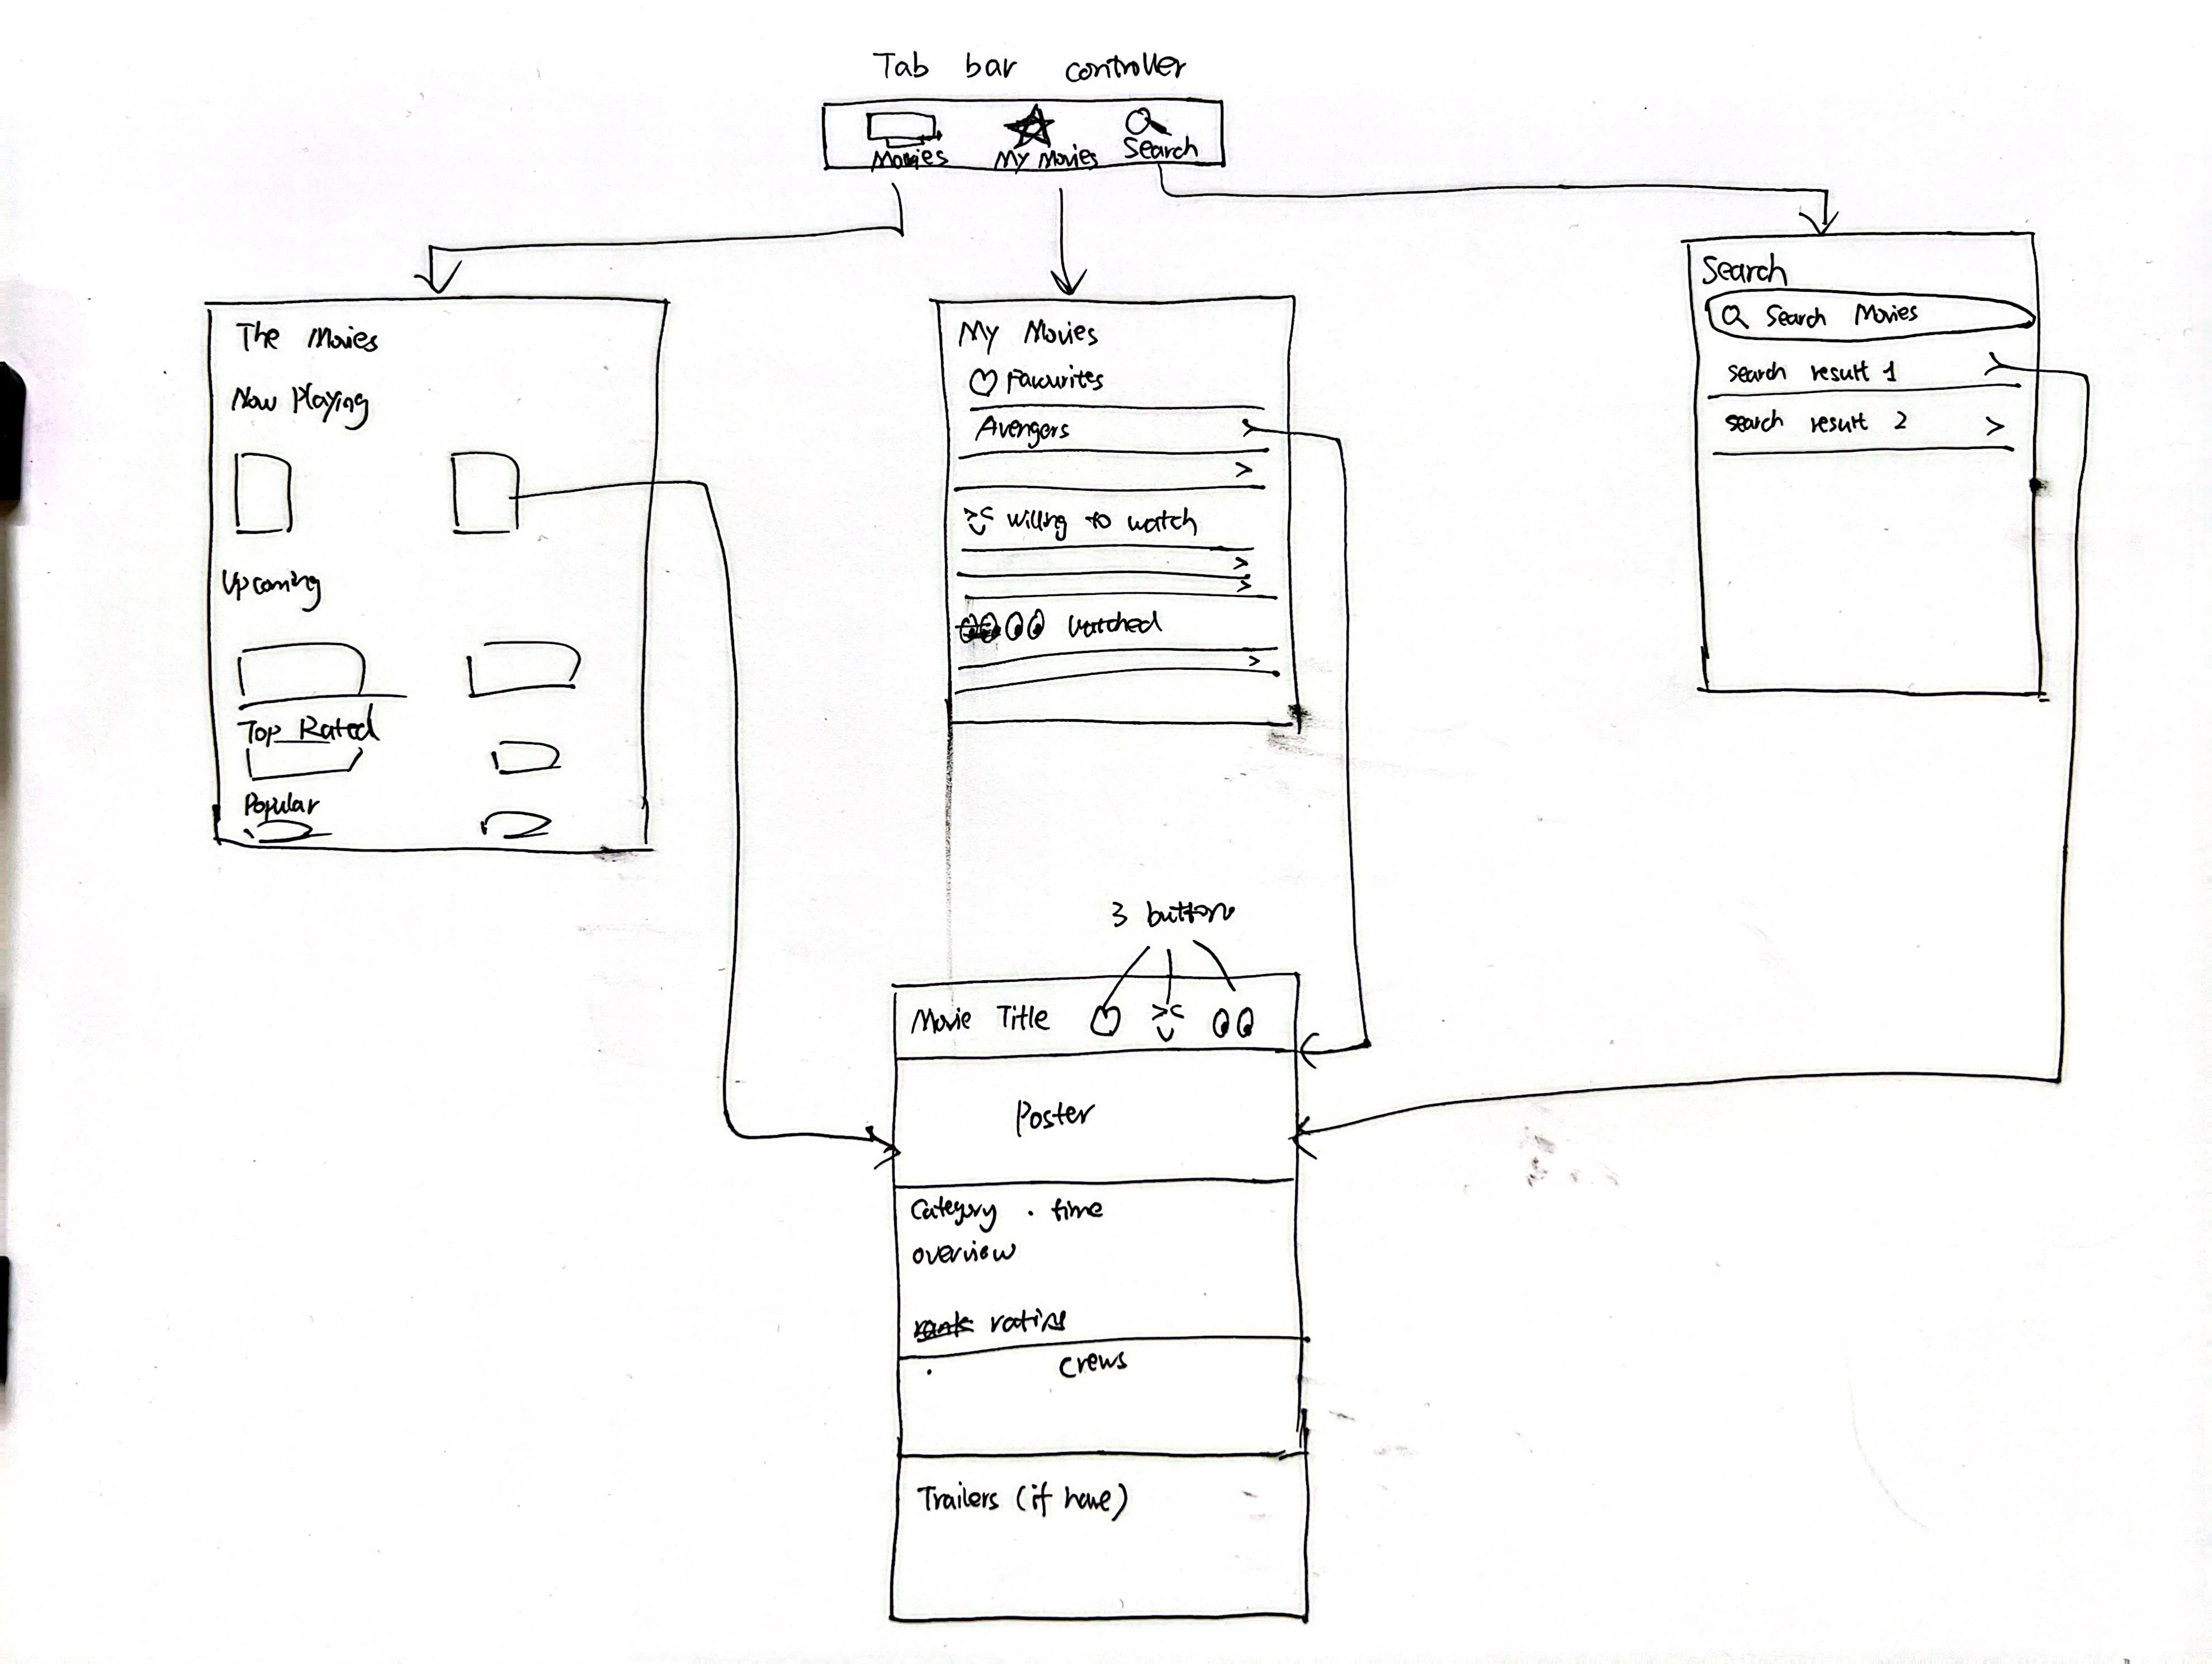 Tab bar controller
Movies My Movies Search
The Movies
Now Playing
Upcoming
Top Rated
Popular
My Movies
Favourites
Avengers
>
willing to watch
>
>
watched
>
Search
Search Movies
search result 1 >
search result 2 >
3 button
Movie Title
Poster
Category · time
overview
rating
crews
Trailers (if have)